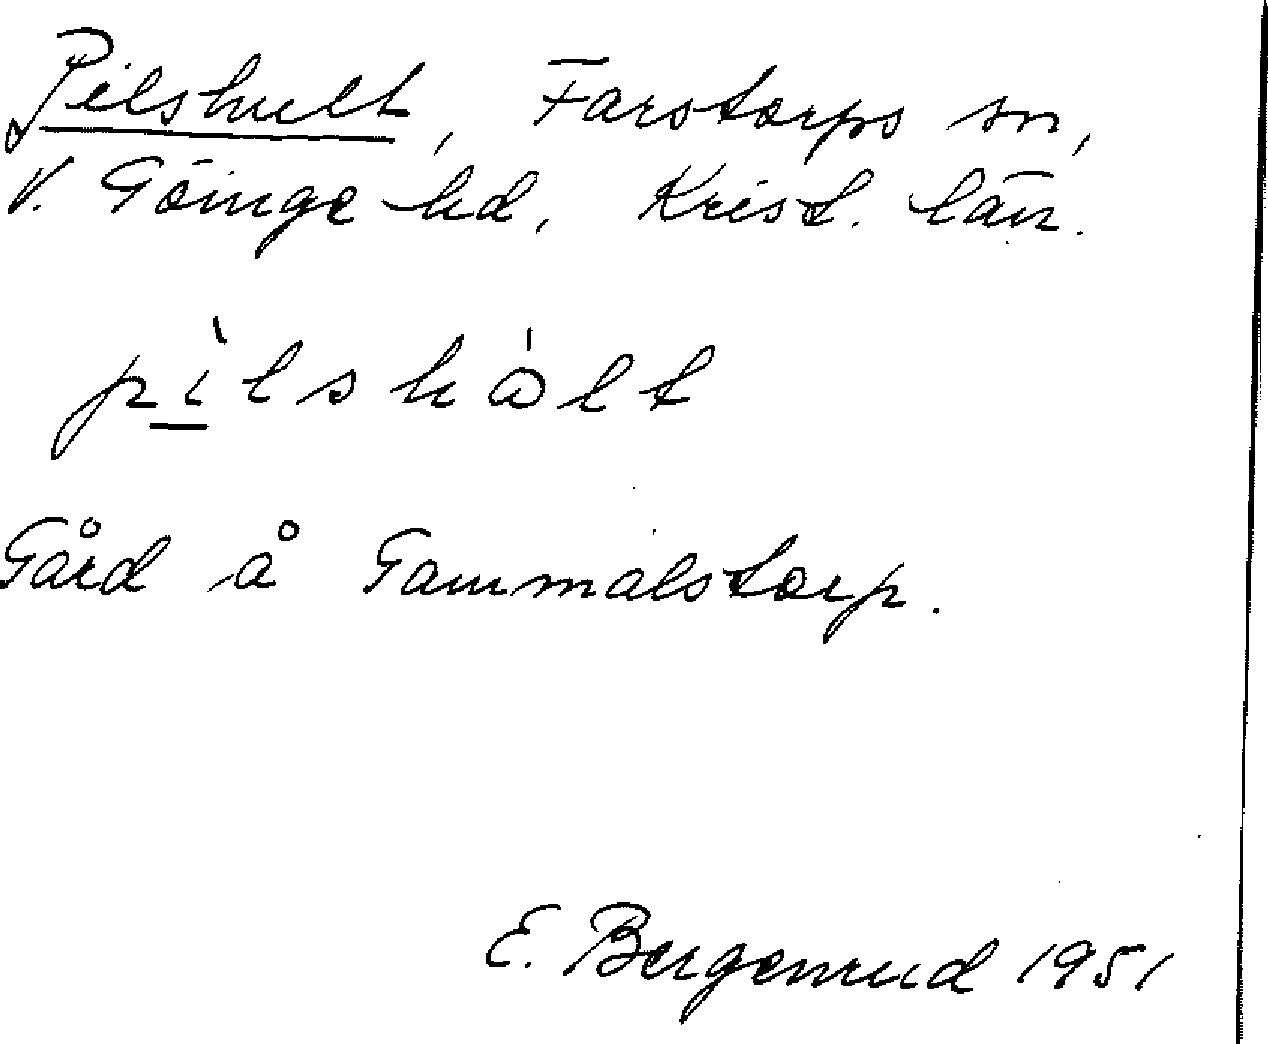 Pilshult, Farstorps sn,
V. Göinge hd, Krist. län.
pı̲̀lshȧ̍lt
Gård å Gammalstorp.
E. Bergenrud 1951